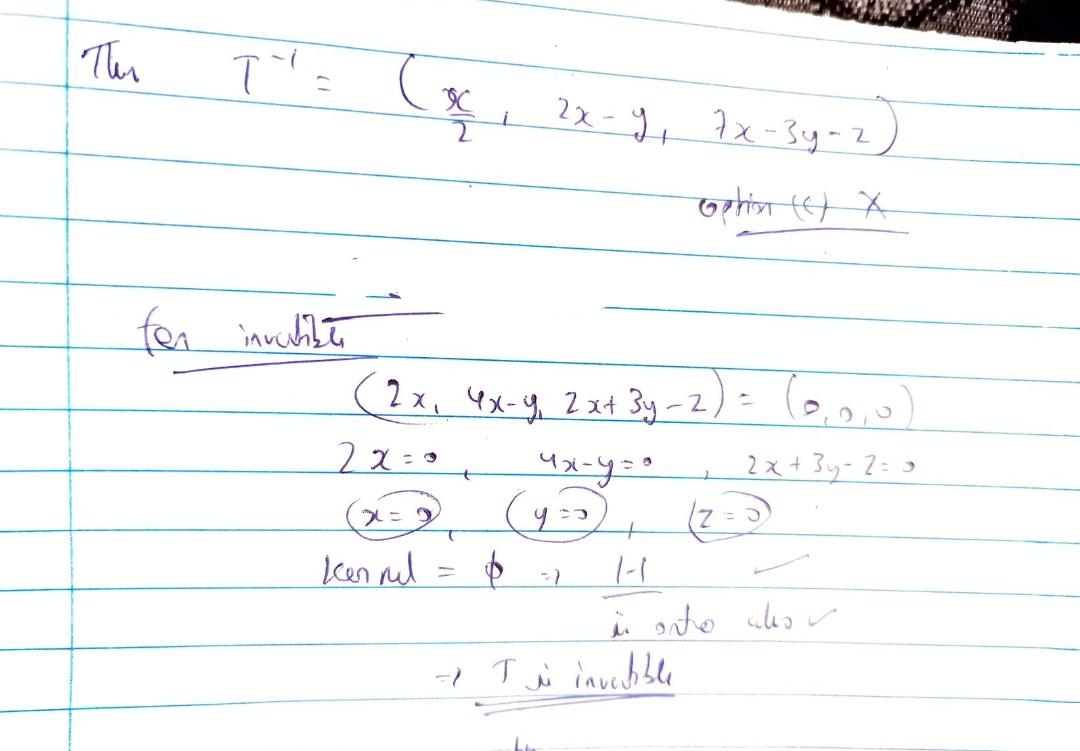 Then T⁻¹ = (x/2, 2x-y, 7x-3y-z)
option (c) X
for invertible
(2x, 4x-y, 2x+3y-z) = (0,0,0)
2x=0, 4x-y=0, 2x+3y-z=0
x=0, y=0, z=0
Kernel = ϕ => 1-1 ✓
is onto also ✓
=> T is invertible